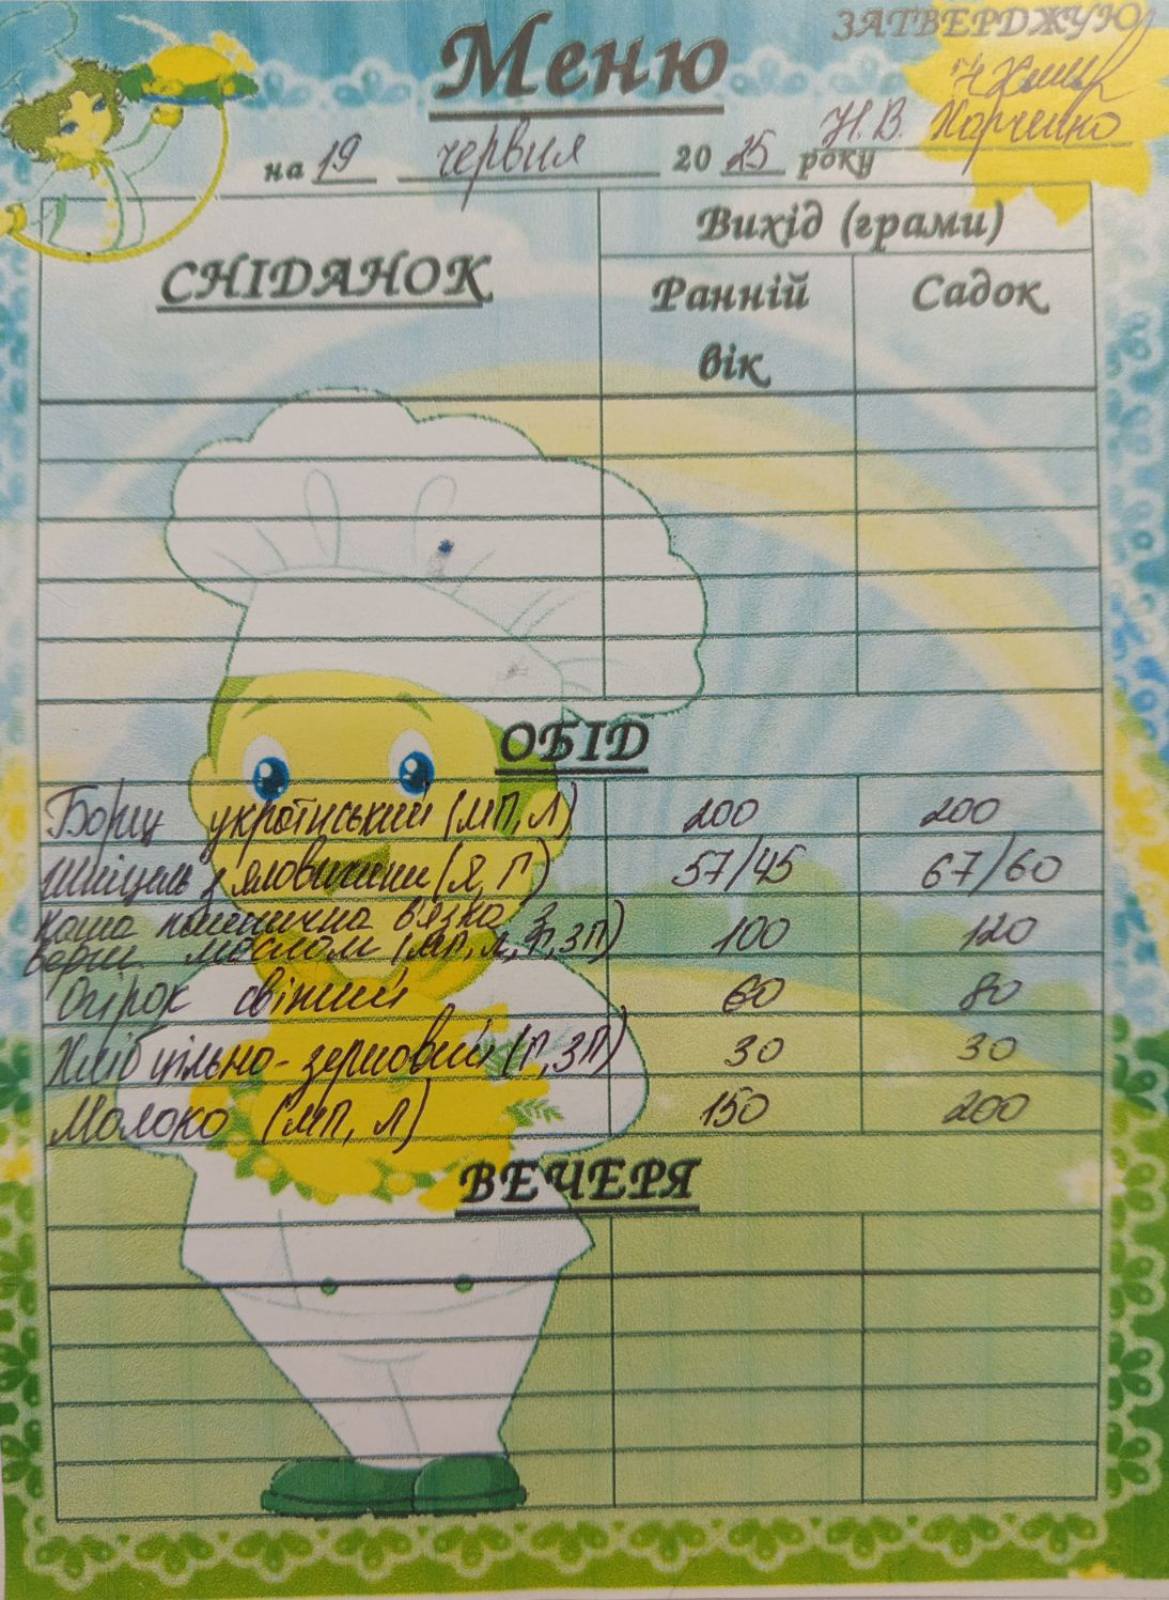 ЗАТВЕРДЖУЮ
Меню
Н.В. Харченко
на 19 червня 20 25 року
СНІДАНОК
Вихід (грами)
Ранній вік
Садок
ОБІД
Борщ український (МП, Л) 200 200
Шніцель з яловичини (Я, Г) 57/45 67/60
Каша пшенична в'язка з
верш маслом (МП, Л, Г, ЗП) 100 120
Огірок свіжий 60 80
Хліб цільно-зерновий (Г, ЗП) 30 30
Молоко (МП, Л) 150 200
ВЕЧЕРЯ